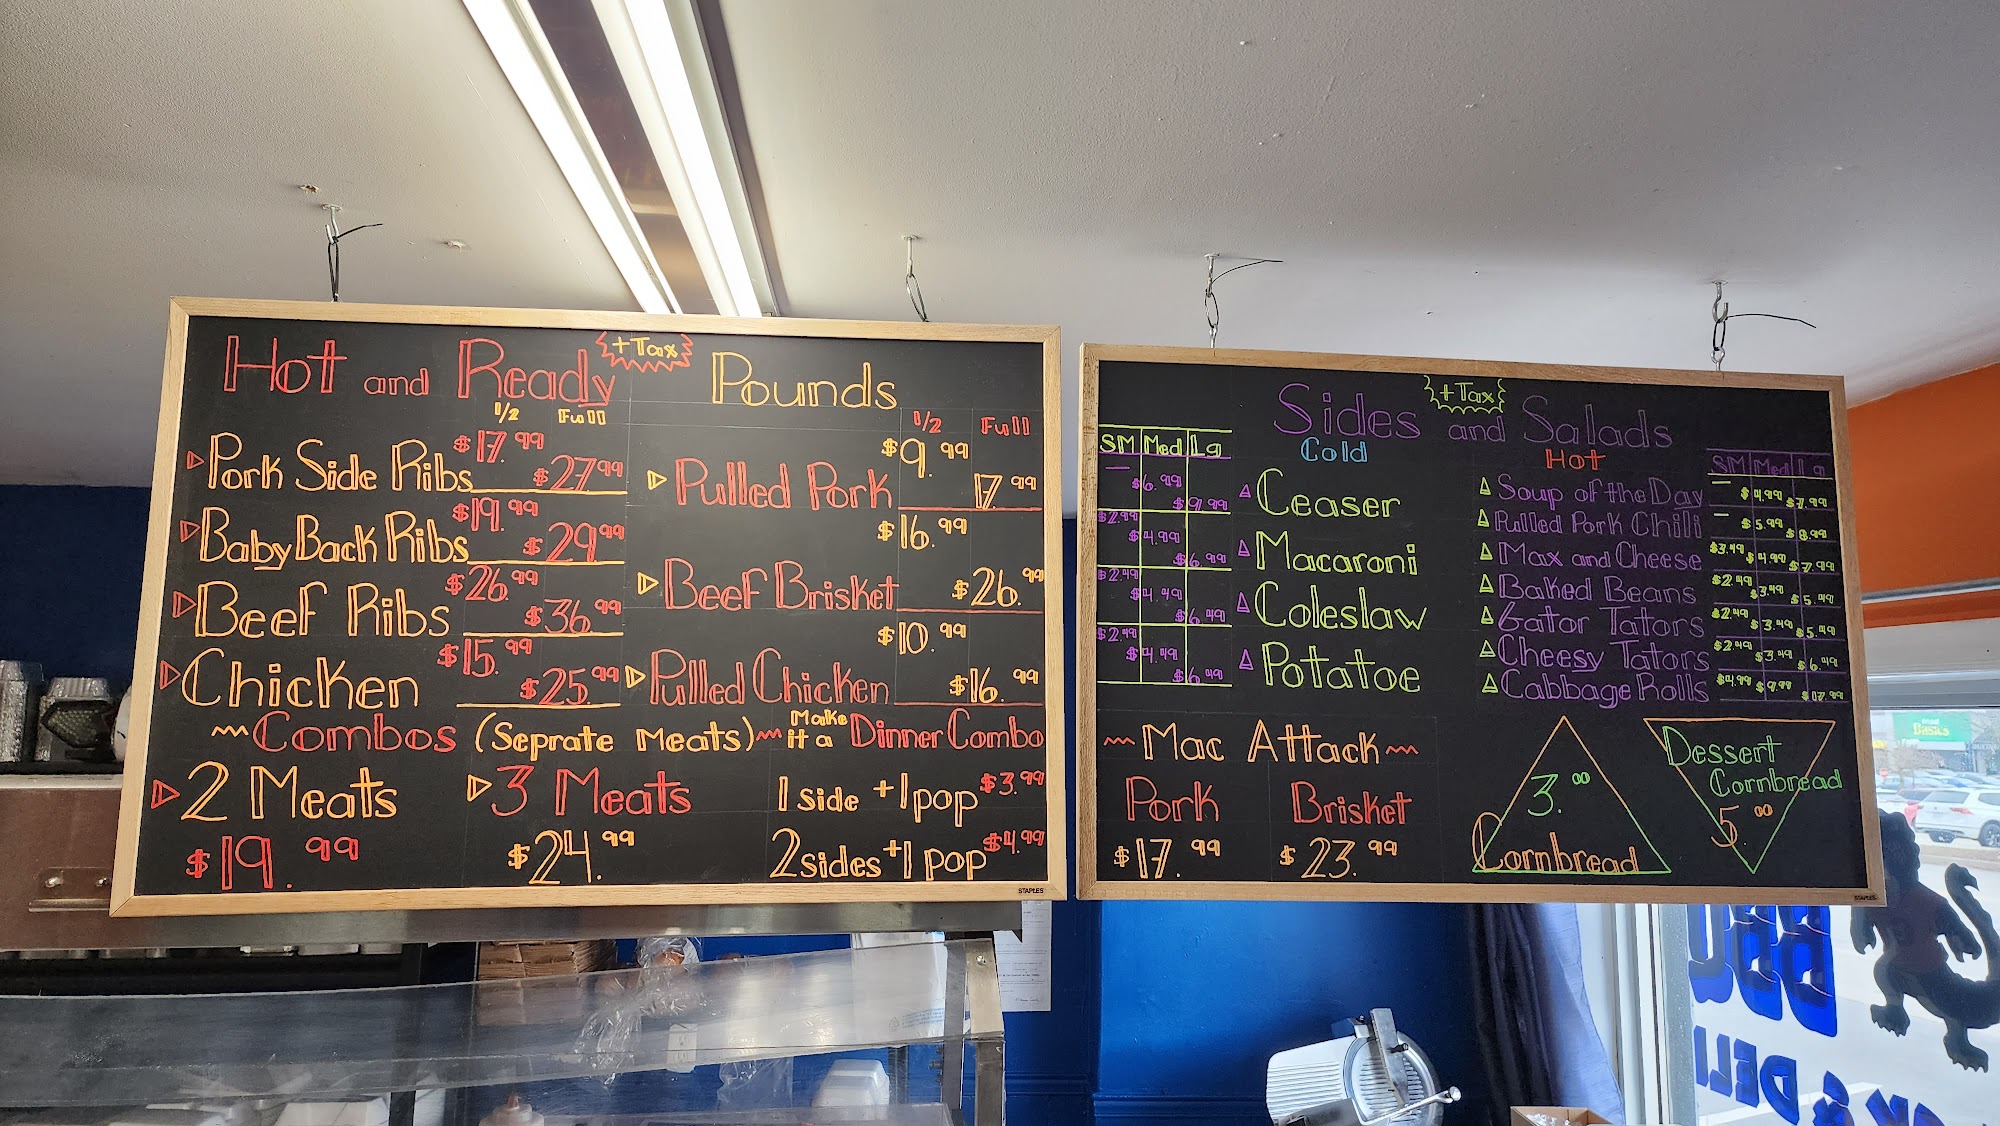 Hot and Ready +Tax Pounds
1/2 Full
Pork Side Ribs $17.99 $27.99
Baby Back Ribs $19.99 $29.99
Beef Ribs $26.99 $36.99
Chicken $15.99 $25.99
1/2 Full
Pulled Pork $9.99 17.99
Beef Brisket $16.99 $26.99
Pulled Chicken $10.99 $16.99
Combos (Seprate Meats) Make it a Dinner Combo
2 Meats
$19.99
3 Meats
$24.99
1 side +1 pop $3.99
2 sides +1 pop $4.99
STAPLES
+Tax
Sides and Salads
Cold
SM Med Lg
— $6.99 $9.99 Ceaser
$2.99 $4.99 $6.99 Macaroni
$2.49 $4.49 $6.49 Coleslaw
$2.49 $4.49 $6.49 Potatoe
Hot
SM Med Lg
Soup of the Day — $4.99 $7.99
Pulled Pork Chili — $5.99 $8.99
Max and Cheese $3.49 $4.99 $7.99
Baked Beans $2.49 $3.49 $5.49
Gator Tators $2.49 $3.49 $5.49
Cheesy Tators $2.49 $3.49 $6.49
Cabbage Rolls $4.99 $9.99 $17.99
Mac Attack
Pork
$17.99
Brisket
$23.99
3.00
Cornbread
Dessert
Cornbread
5.00
STAPLES
Basics
BBQ
& DELI